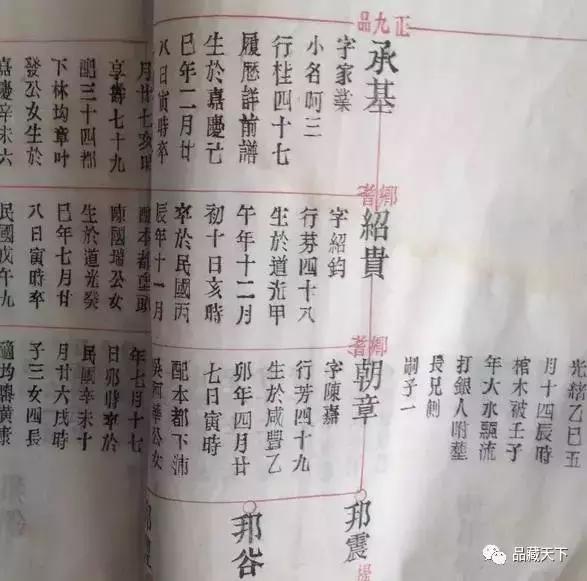 正九品
承基
字家業
小名呵三
行桂四十七
履歷詳前譜
生於嘉慶己
巳年二月廿
八日寅時卒
月廿七亥時
享壽七十九
配三十四都
下林均章叶
發公女生於
嘉慶辛未六
鄉耆
紹貴
字紹鈞
行芬四十八
生於道光甲
午年十二月
初十日亥時
卒於民國丙
辰年十一月
配本都頭
陳國瑞公女
生於道光癸
巳年七月廿
八日寅時卒
民國戊午九
光緒乙巳五
月十四辰時
棺木被壬子
年大水飄流
打銀人咐塟
長兄側
嗣子一
鄉耆
朝章
字陳嘉
行芳四十九
生於咸豐乙
卯年四月廿
七日寅時
配本都下沛
吳阿華公女
年七月十七
日卯時卒於
民國辛未十
月廿六戌時
子三女四長
適均黃康
邦震
邦谷
品藏天下